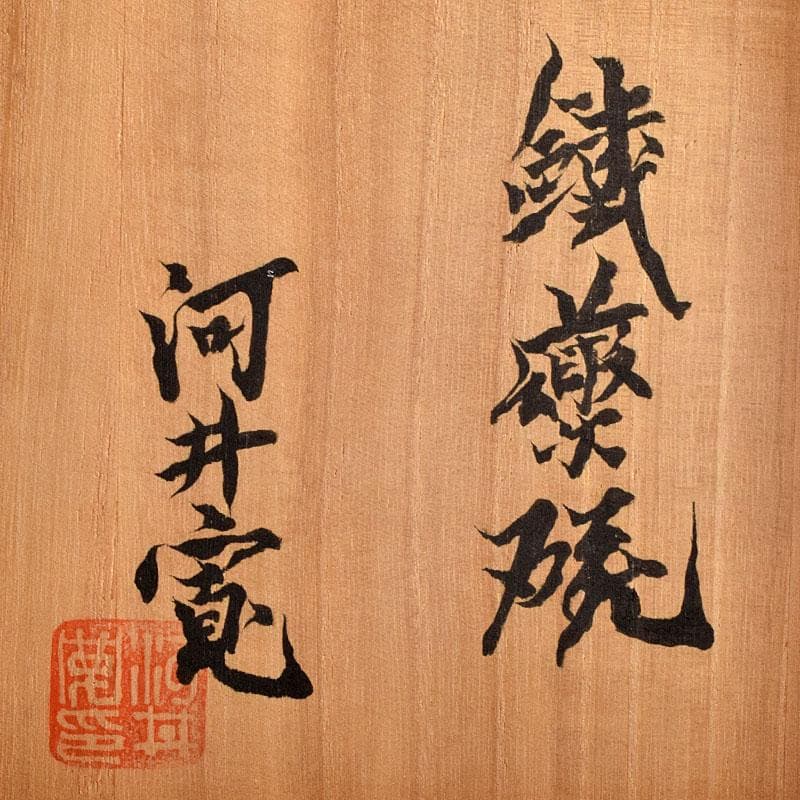 鐵藥碗
河井寛
河井
寛印